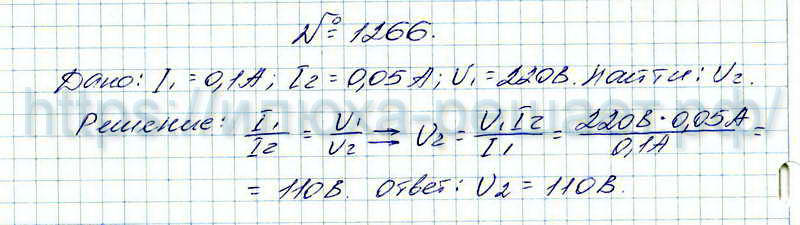 № 1266.
Дано: I₁ = 0,1А; I₂ = 0,05А; U₁ = 220В. Найти: U₂.
Решение: I₁/I₂ = U₁/U₂ → U₂ = U₁I₂/I₁ = 220В · 0,05А/0,1А =
= 110В. Ответ: U₂ = 110В.